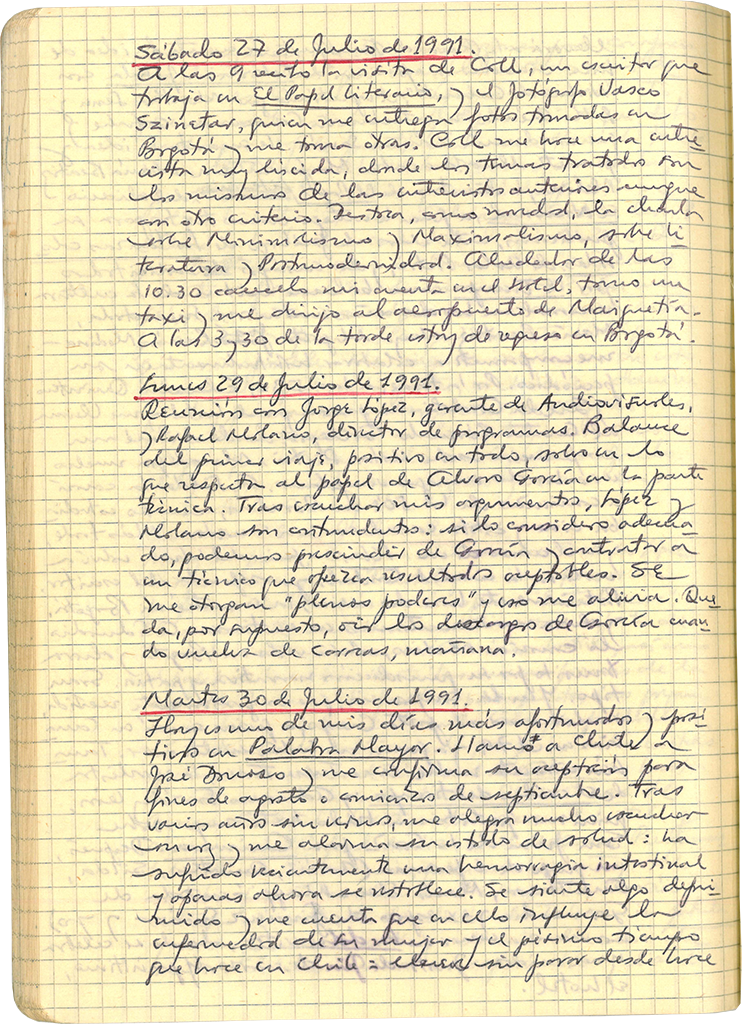 Sábado 27 de Julio de 1991.
A las 9 recibo la visita de Coll, un escritor que
trabaja en El Papel Literario, y el fotógrafo Vasco
Szinetar, quien me entrega fotos tomadas en
Bogotá y me toma otras. Coll me hace una entre-
vista muy lúcida, donde los temas tratados son
los mismos de las entrevistas anteriores aunque
con otro criterio. Destaca, como novedad, la charla
sobre Minimalismo y Maximalismo, sobre li-
teratura y Postmodernidad. Alrededor de las
10.30 cancelo mi cuenta en el hotel, tomo un
taxi y me dirijo al aeropuerto de Maiquetía.
A las 3 y 30 de la tarde estoy de regreso en Bogotá.
Lunes 29 de Julio de 1991.
Reunión con Jorge López, gerente de Audiovisuales,
y Rafael Molano, director de programas. Balance
del primer viaje, positivo en todo, salvo en lo
que respecta al papel de Alvaro García en la parte
técnica. Tras escuchar mis argumentos, López y
Molano son contundentes: si lo considero adecua-
do, podemos prescindir de García y contratar a
un técnico que ofrezca resultados aceptables. Se
me otorgan "plenos poderes" y eso me alivia. Que-
da, por supuesto, oir los descargos de García cuan-
do vuelva de Caracas, mañana.
Martes 30 de Julio de 1991.
Hoy es uno de mis días más afortunados y posi-
tivos en Palabra Mayor. Llamo a Chile a
José Donoso y me confirma su aceptación para
fines de agosto o comienzos de septiembre. Tras
varios años sin vernos, me alegra mucho escuchar
su voz y me alarma su estado de salud: ha
sufrido recientemente una hemorragia intestinal
y apenas ahora se restablece. Se siente algo depri-
mido y me cuenta que en ello influye la
enfermedad de su mujer y el pésimo tiempo
que hace en Chile: llueve sin parar desde hace